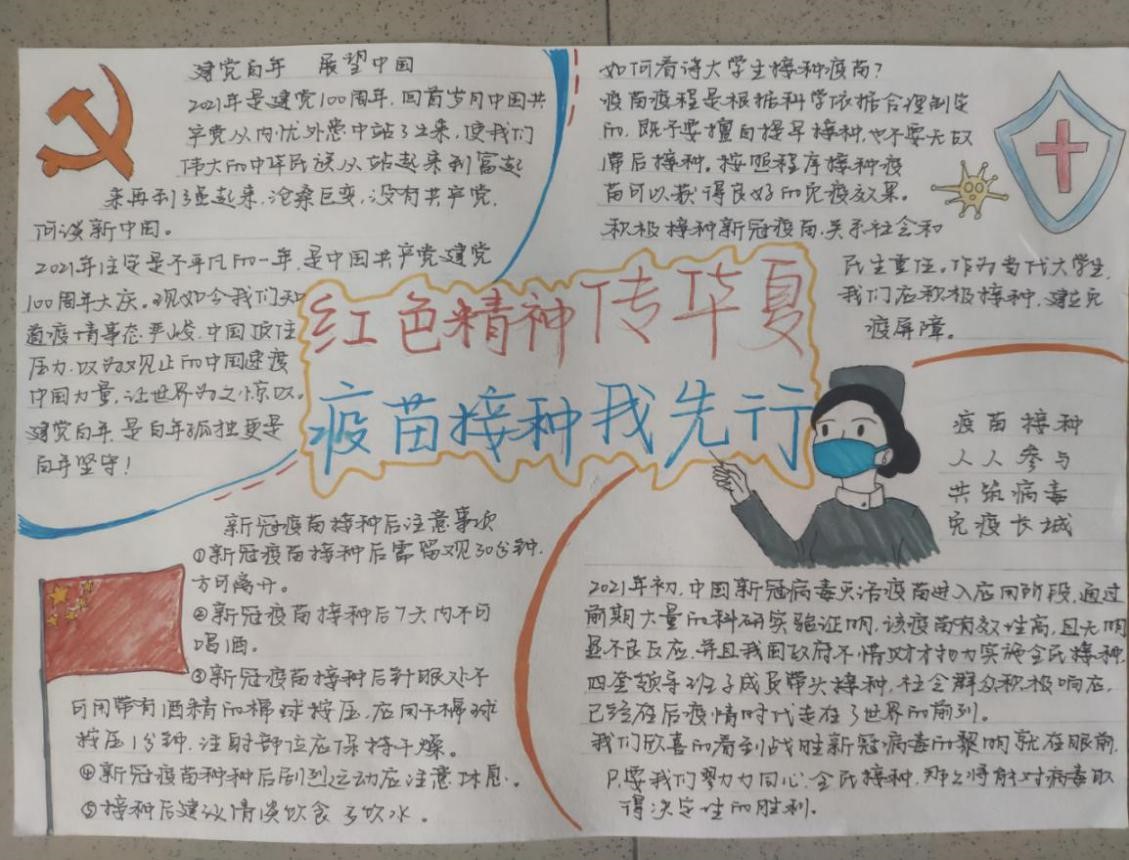 建党百年 展望中国
2021年是建党100周年,回首岁月中国共
产党从内忧外患中站了起来,使我们
伟大的中华民族从站起来到富起
来再到强起来,沧桑巨变,没有共产党,
何谈新中国。
2021年注定是不平凡的一年,是中国共产党建党
100周年大庆。现如今我们知
道疫情事态严峻,中国顶住
压力,叹为观止的中国速度
中国力量,让世界为之惊叹。
建党百年,是百年孤独更是
百年坚守!
如何看待大学生接种疫苗?
疫苗疫程是根据科学依据合理制定
的,既不要擅自提早接种,也不要无故
滞后接种。按照程序接种疫
苗可以获得良好的免疫效果。
积极接种新冠疫苗,关系社会和
民生重任。作为当代大学生,
我们应积极接种,建立免
疫屏障。
红色精神传华夏
疫苗接种我先行
疫苗接种
人人参与
共筑病毒
免疫长城
新冠疫苗接种后注意事项
①新冠疫苗接种后需留观30分钟,
方可离开。
②新冠疫苗接种后7天内不可
喝酒。
③新冠疫苗接种后针眼处不
可用带有酒精的棉球按压,应用干棉球
按压1分钟,注射部位应保持干燥。
④新冠疫苗种种后剧烈运动应注意休息。
⑤接种后建议清淡饮食多饮水。
2021年初,中国新冠病毒灭活疫苗进入应用阶段,通过
前期大量的科研实验证明,该疫苗有效性高,且无明
显不良反应,并且我国政府不惜财才物力实施全民接种,
四套领导班子成员带头接种,社会群众积极响应,
已经在后疫情时代走在了世界的前列。
我们欣喜的看到战胜新冠病毒的黎明就在眼前,
只要我们勠力同心,全民接种,那么将能对病毒取
得决定性的胜利.